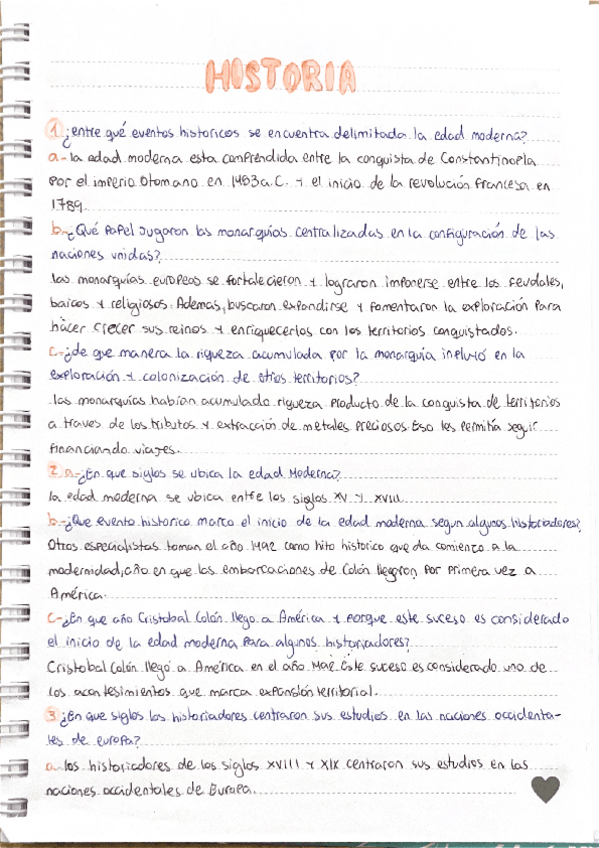 HISTORIA
1 ¿entre qué eventos historicos se encuentra delimitada la edad moderna?
a- la edad moderna esta comprendida entre la conquista de Constantinopla
por el imperio Otomano en 1453 a.C. y el inicio de la revolución francesa en
1789.
b- ¿Qué papel jugaron las monarquías centralizadas en la configuración de las
naciones unidas?
las monarquías europeas se fortalecieron y lograron imponerse entre los feudales,
baicos y religiosos. Ademas, buscaron expandirse y fomentaron la exploración para
hacer crecer sus reinos y enriquecerlos con los territorios conquistados.
c- ¿de que manera la riqueza acumulada por la monarquía influió en la
exploración y colonización de otros territorios?
las monarquías habían acumulado riqueza producto de la conquista de territorios
a traves de los tributos y extracción de metales preciosos. Eso les permitía seguir
financiando viajes.
2 a- ¿En que siglos se ubica la edad Moderna?
la edad moderna se ubica entre los siglos XV y XVIII
b- ¿Que evento historico marco el inicio de la edad moderna segun algunos historiadores?
Otros especialistas toman el año 1492 como hito historico que da comienzo a la
modernidad, año en que las embarcaciones de Colón llegaron por primera vez a
América.
c- ¿En que año Cristobal Colón llego a América y porque este suceso es considerado
el inicio de la edad moderna para algunos historiadores?
Cristobal Colón llegó a América en el año 1492. Este suceso es considerado uno de
los acontesimientos que marca expansión territorial.
3 ¿En que siglos los historiadores centraron sus estudios en las naciones occidenta-
les de europa?
a- los historicadores de los siglos XVIII y XIX centraron sus estudios en las
naciones occidentales de Europa.